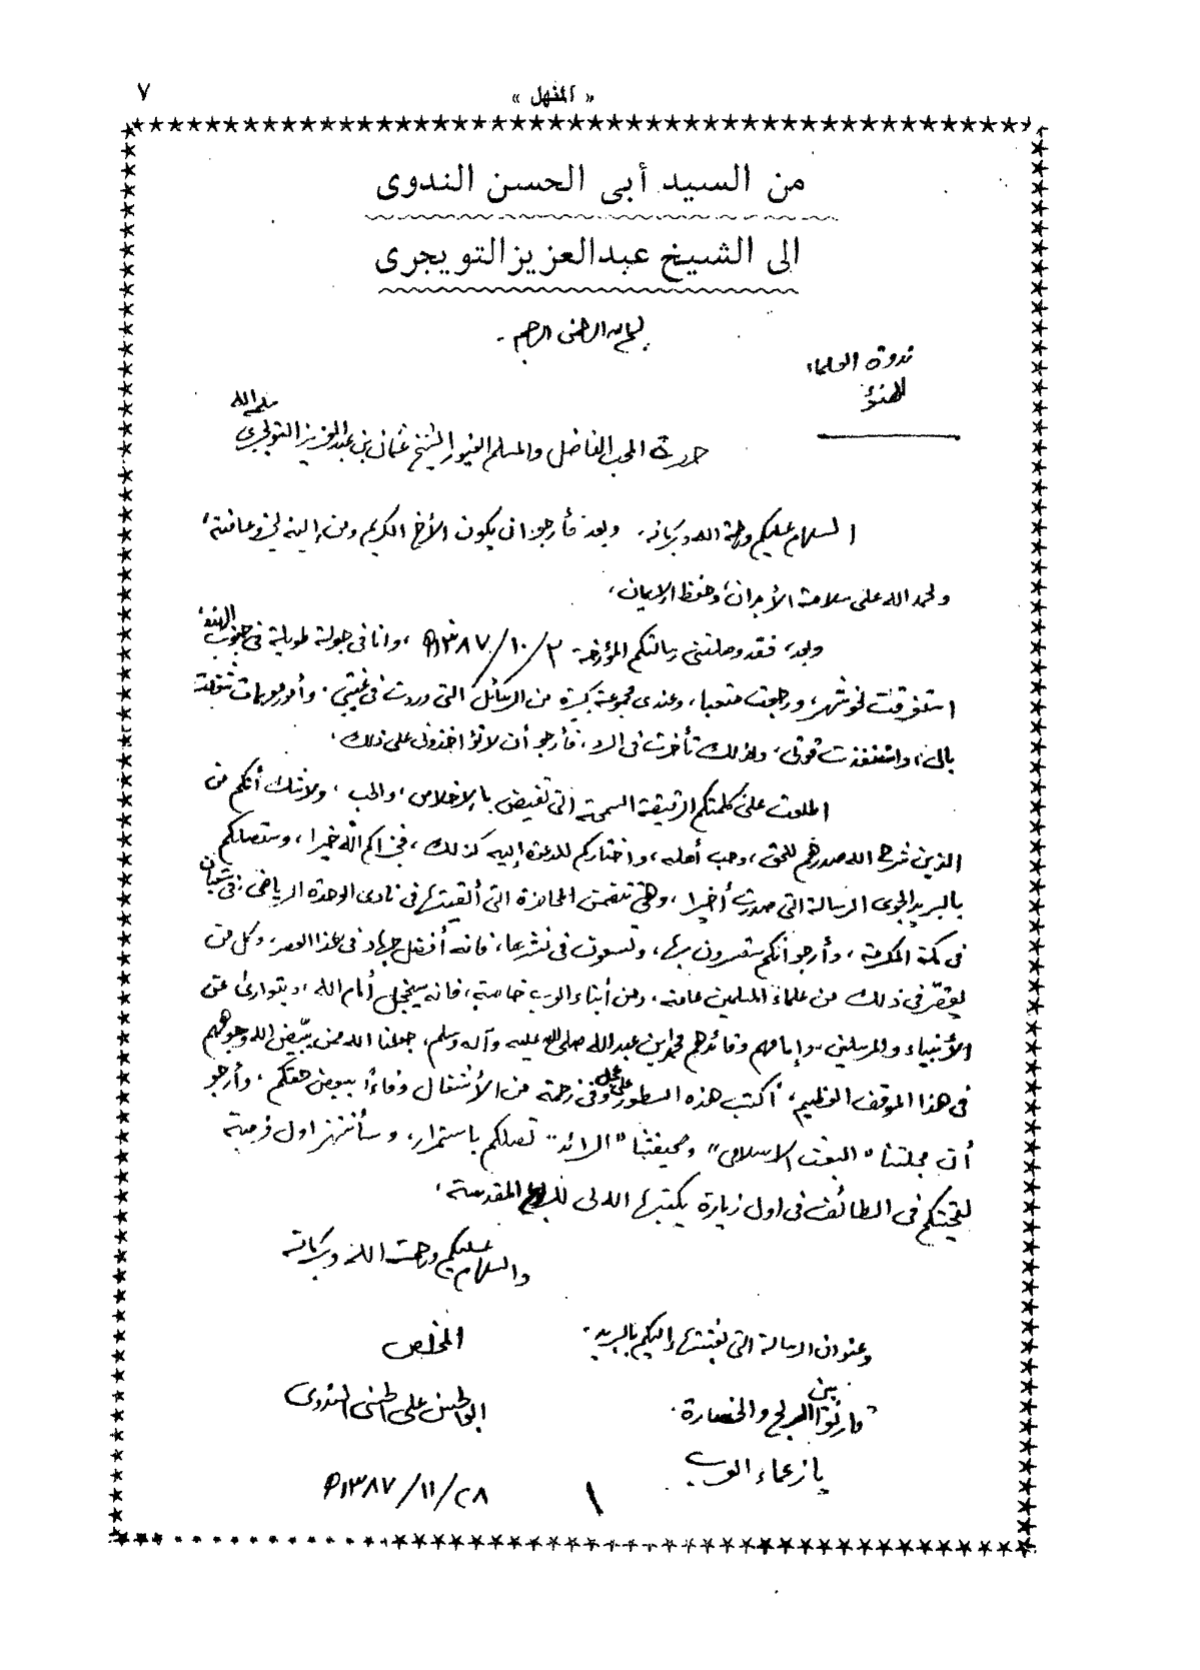 « المنهل »
٧
من السيد أبى الحسن الندوى
الى الشيخ عبدالعزيز التويجرى
بسم الله الرحمن الرحيم .
ندوة العلماء
لكهنؤ
حضرة المحب الفاضل والمسلم الغيور الشيخ عثمان بن عبد العزيز التويجرى سلمه الله
السلام عليكم ورحمة الله وبركاته ، وبعد فأرجو ان يكون الأخ الكريم ومن إليه فى خير وعافية ،
والحمد الله على سلامة الأبدان ، وحفظ الإيمان ،
وبعد ، فقد وصلتنى رسالتكم المؤرخة ٢/ ١٠/ ١٣٨٧ھ ، وانا فى جولة طويلة فى جنوب الهند ،
استغرقت نحو شهر ، ورجعت متعبا ، وعندى مجموعة كبيرة من الرسائل التى وردت فى غيبتى . وأمور شغلت
بالى ، واستنفذت قوتى ، ولذلك تأخرت فى الرد ، فأرجو أن لا تؤاخذونى على ذلك .
اطلعت على كلمتكم الرقيقة السمحة التى تفيض بالإخلاص ، والحب ، ولا شك أنكم من
الذين شرح الله صدورهم للحق ، وحب أهله ، واختاركم للدعوة إليه كذلك ، فجزاكم الله خيرا ، وستصلكم
بالبريد الجوى الرسالة التى صدرت أخيرا ، وهى تتضمن المحاضرة التى ألقيتها فى نادى الوحدة الرياضى ، فى شعبان
فى مكة المكرمة ، وأرجو أنكم ستسرون بها ، وتسعون فى نشرها ، فانه أفضل جهاد فى هذا العصر ، وكل من
يقصّر فى ذلك من علماء المسلمين عامة ، ومن أبناء العرب خاصة ، فانه سيخجل أمام الله ، ويتوارى عن
الأنبياء والمرسلين ، وإمامهم وقائدهم محمد بن عبدالله صلى الله عليه وآله وسلم ، جعلنا الله ممن يبيّض الله وجوههم
فى هذا الموقف العظيم ، أكتب هذه السطور على عجل وفى زحمة من الأشغال وفاءً ببعض حقكم ، وأرجو
أن مجلتنا " البعث الاسلامى " وصحيفتنا " الرائد " تصلكم باستمرار ، وسأنتهز اول فرصة
لتحيتكم فى الطائف فى اول زيارة يكتبها الله لى للبلاد المقدسة ،
والسلام عليكم ورحمة الله وبركاته
المخلص
ابوالحسن على الحسنى الندوى
٢٨/ ١١/ ١٣٨٧ھ
وعنوان الرسالة التى بعثتها إليكم بالبريد .
" قارنوا بين الربح والخسارة .
يا زعماء العرب
١